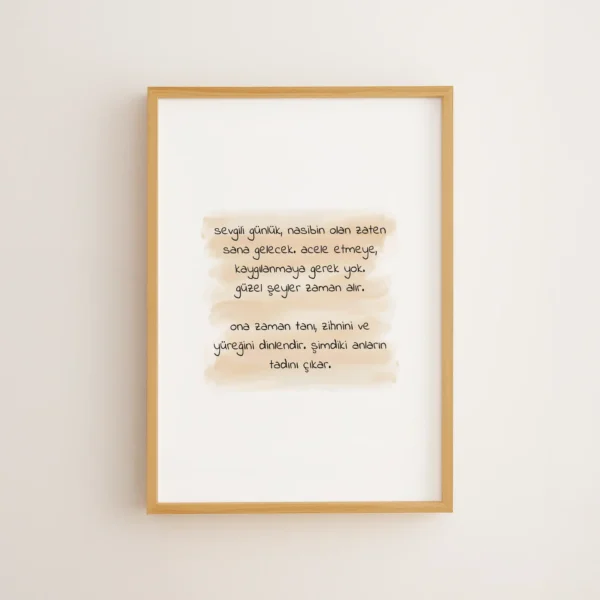 sevgili günlük, nasibin olan zaten
sana gelecek. acele etmeye,
kaygılanmaya gerek yok.
güzel şeyler zaman alır.
ona zaman tanı, zihnini ve
yüreğini dinlendir. şimdiki anların
tadını çıkar.